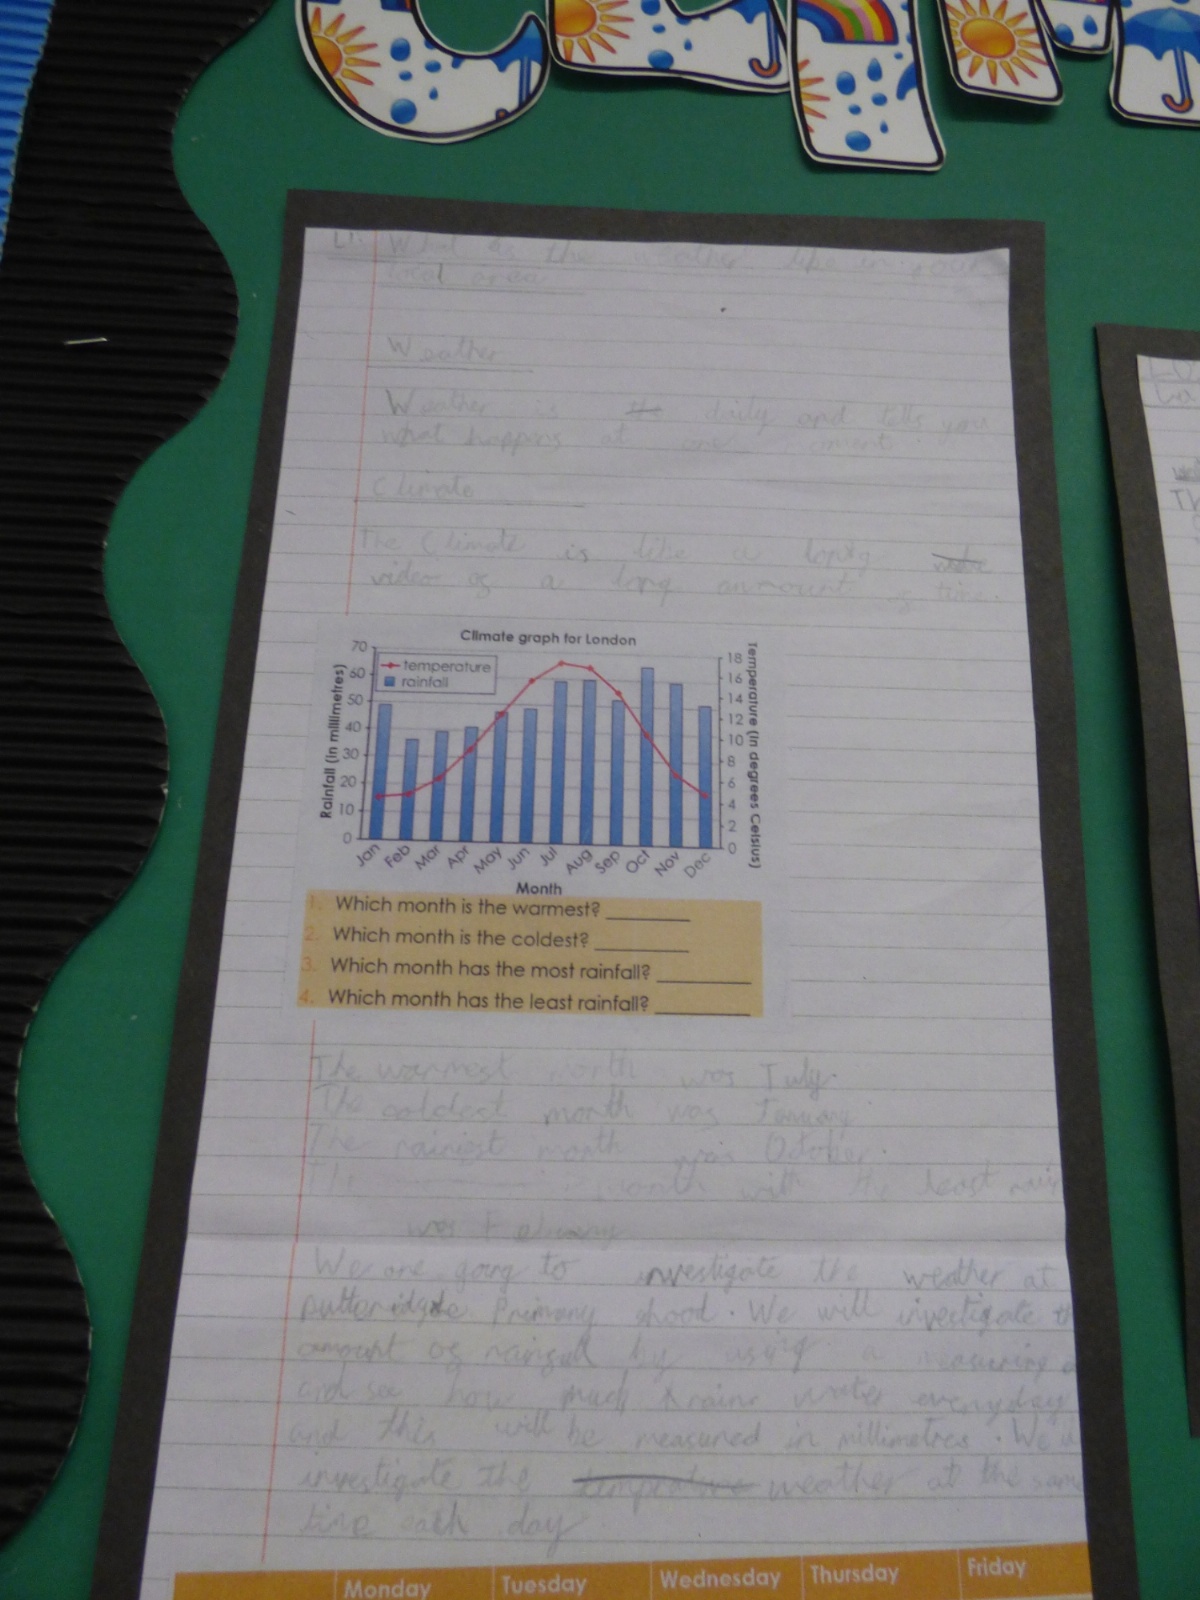 LI: What is the weather like in your
local area
Weather
Weather is the daily and tells you
what happens at one
Climate
The Climate is like a
video of a long ammount of time.
Climate graph for London
temperature
rainfall
Rainfall (in millimetres)
70
60
50
40
30
20
10
0
18
16
14
12
10
8
6
4
2
0
Temperature (in degrees Celsius)
Jan Feb Mar Apr May Jun Jul Aug Sep Oct Nov Dec
Month
1. Which month is the warmest?
2. Which month is the coldest?
3. Which month has the most rainfall?
4. Which month has the least rainfall?
The warmest month was July.
The coldest month was January
The rainiest month was October.
The month with the least rain
was February
We are going to investigate the weather at
Primary shool. We will investigate th
amount of by using a measuring
and see how much water everyday
and this will be measured in millimetres. We
investigate the temprature weather at the same
time each day
Monday Tuesday Wednesday Thursday Friday